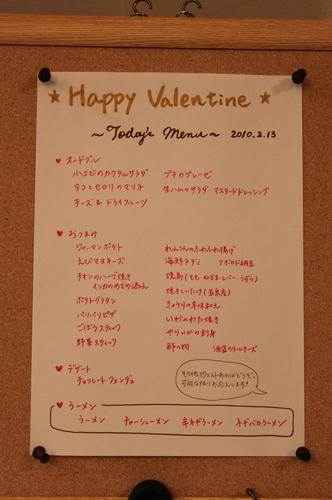 ★ Happy Valentine ★
～ Today's Menu ～ 2010.2.13
♥ オードブル
ハエビのカクテルサラダ プチカプレーゼ
タコとセロリのマリネ 生ハムのサラダ・マスタードドレッシング
チーズ & ドライフルーツ
♥ おつまみ
ジャーマンポテト れんこんのふわふわ揚げ
えびマヨネーズ 海鮮チヂミ アボカド納豆
チキンのハーブ焼き 焼鳥(もも・ねぎま・レバー・うずら)
焼きしいたけ
ポテトグラタン きゅうりの辛味和え
パリパリピザ いかのわた焼き
ごぼうスティック やりいかの刺身
野菜スティック 酢の物 クリームチーズ
♥ デザート
チョコレートフォンデュ
その他リクエストあればどうぞ。
可能な限りおこたえします!
♥ ラーメン
ラーメン チャーシューメン 辛ネギラーメン ネギバカラーメン